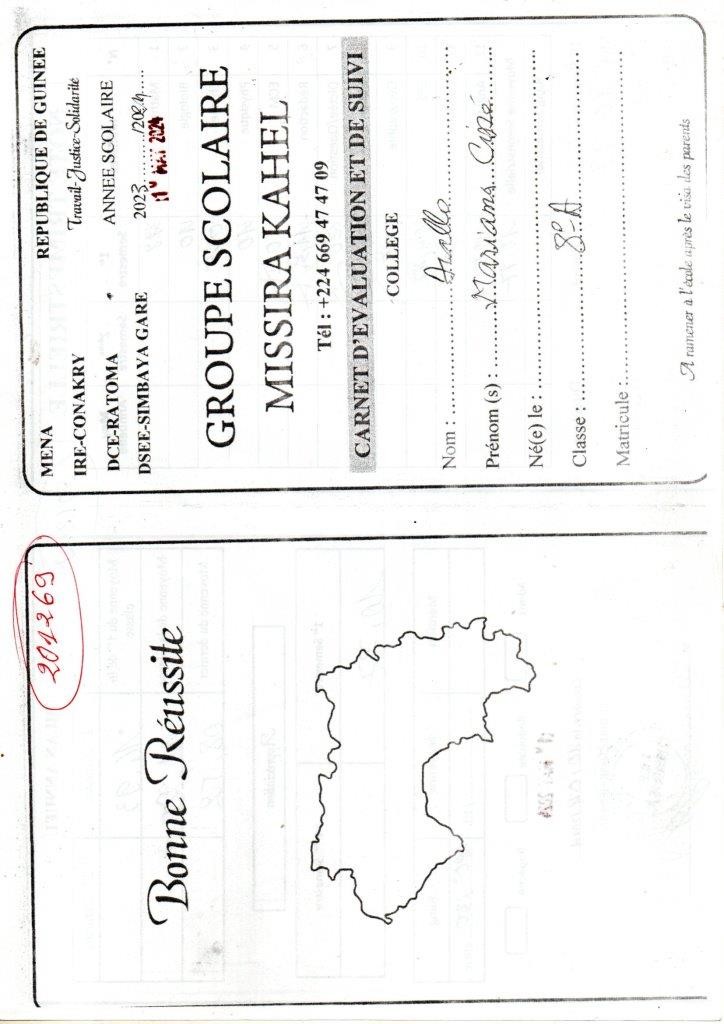 MENA REPUBLIQUE DE GUINEE
IRE-CONAKRY Travail-Justice-Solidarité
DCE-RATOMA ANNEE SCOLAIRE
DSEE-SIMBAYA GARE 2023........./2024....
MAI 2024
GROUPE SCOLAIRE
MISSIRA KAHEL
Tél : +224 669 47 47 09
CARNET D'EVALUATION ET DE SUIVI
COLLEGE
Nom : Diallo
Prénom (s) : Mariama Ciré
Né(e) le :
Classe : 8e A
Matricule :
A ramener à l'école après le visa des parents
201269
Bonne Réussite